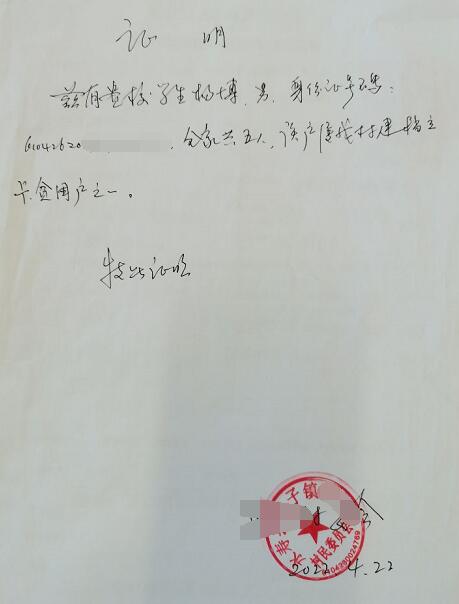 证 明
兹有贵校学生杨博,男,身份证号码:
61042620 ,全家共五人,该户属我村建档立
卡贫困户之一。
特此证明
子镇
村民委员会
2022.4.22